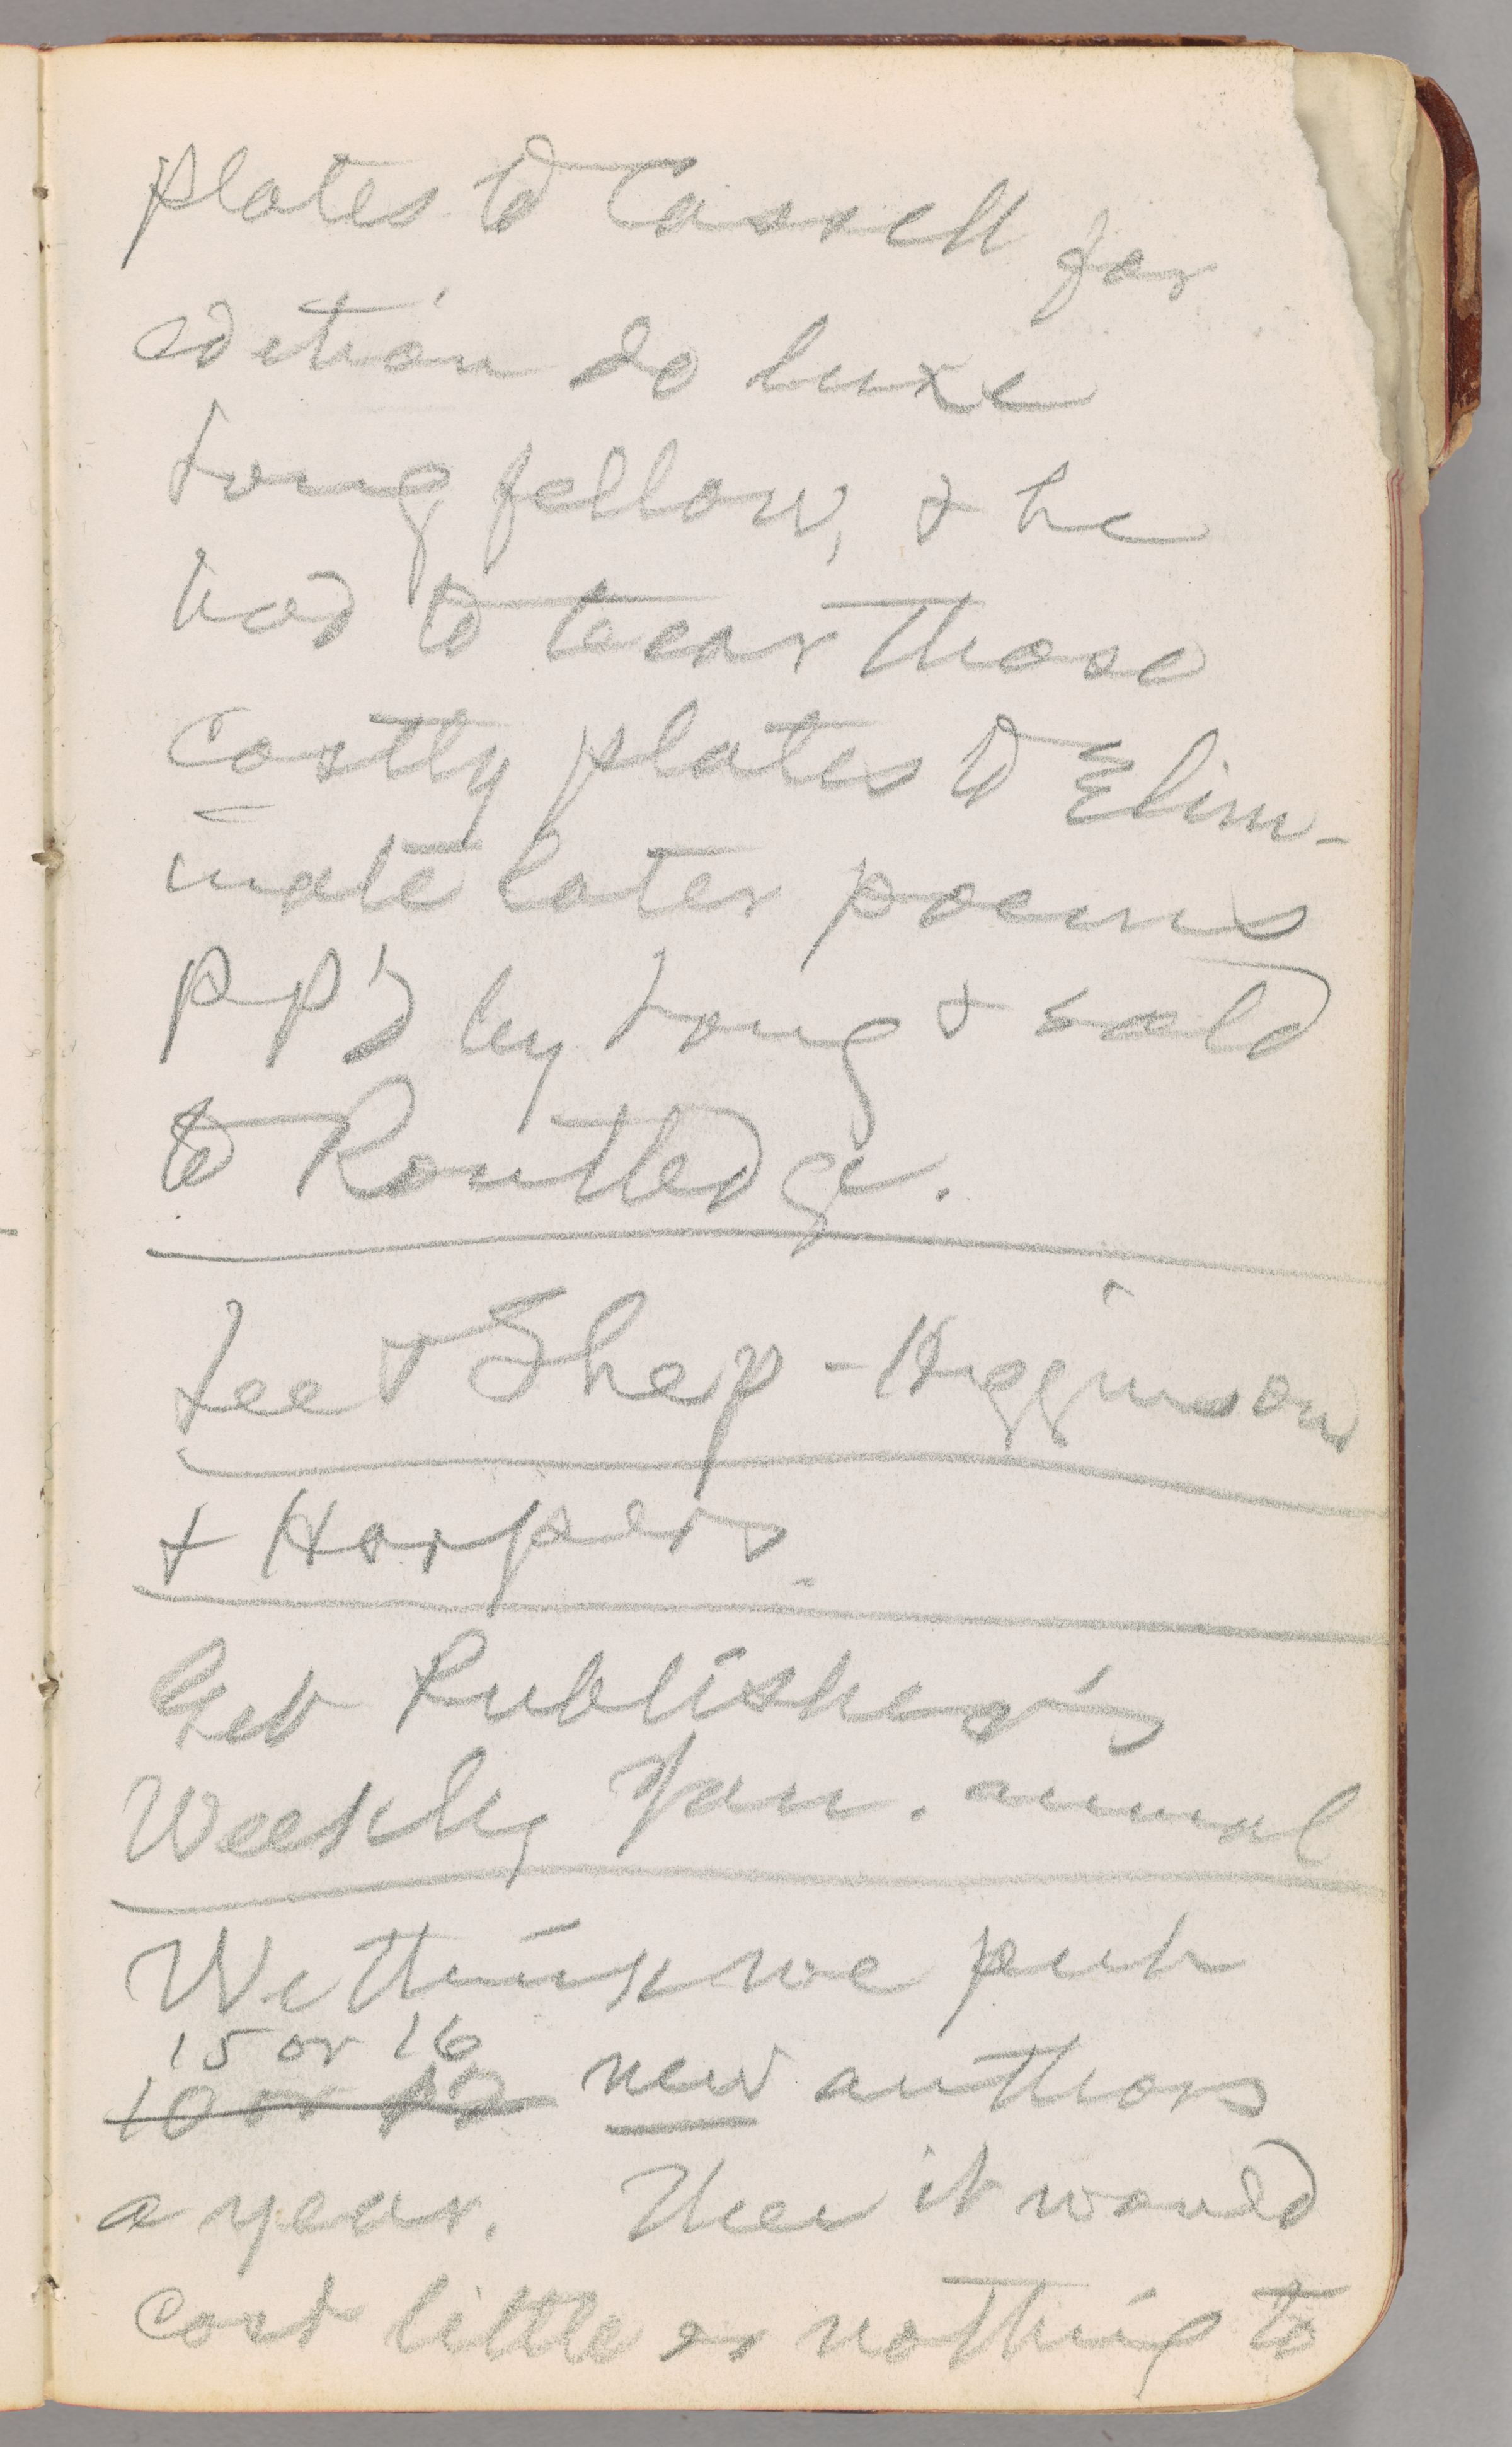 plates to Cassell for
edition de luxe
Longfellow, & he
had to tear those
costly plates to Elim-
inate later poems
PP'd by Long & sold
to Routledge.
Lee & Shep - Higginson
& Harpers.
Get Publisher's
Weekly Jan. annual
We think we pub
15 or 16
10 or 12 new authors
a year. Then it would
cost little or nothing to